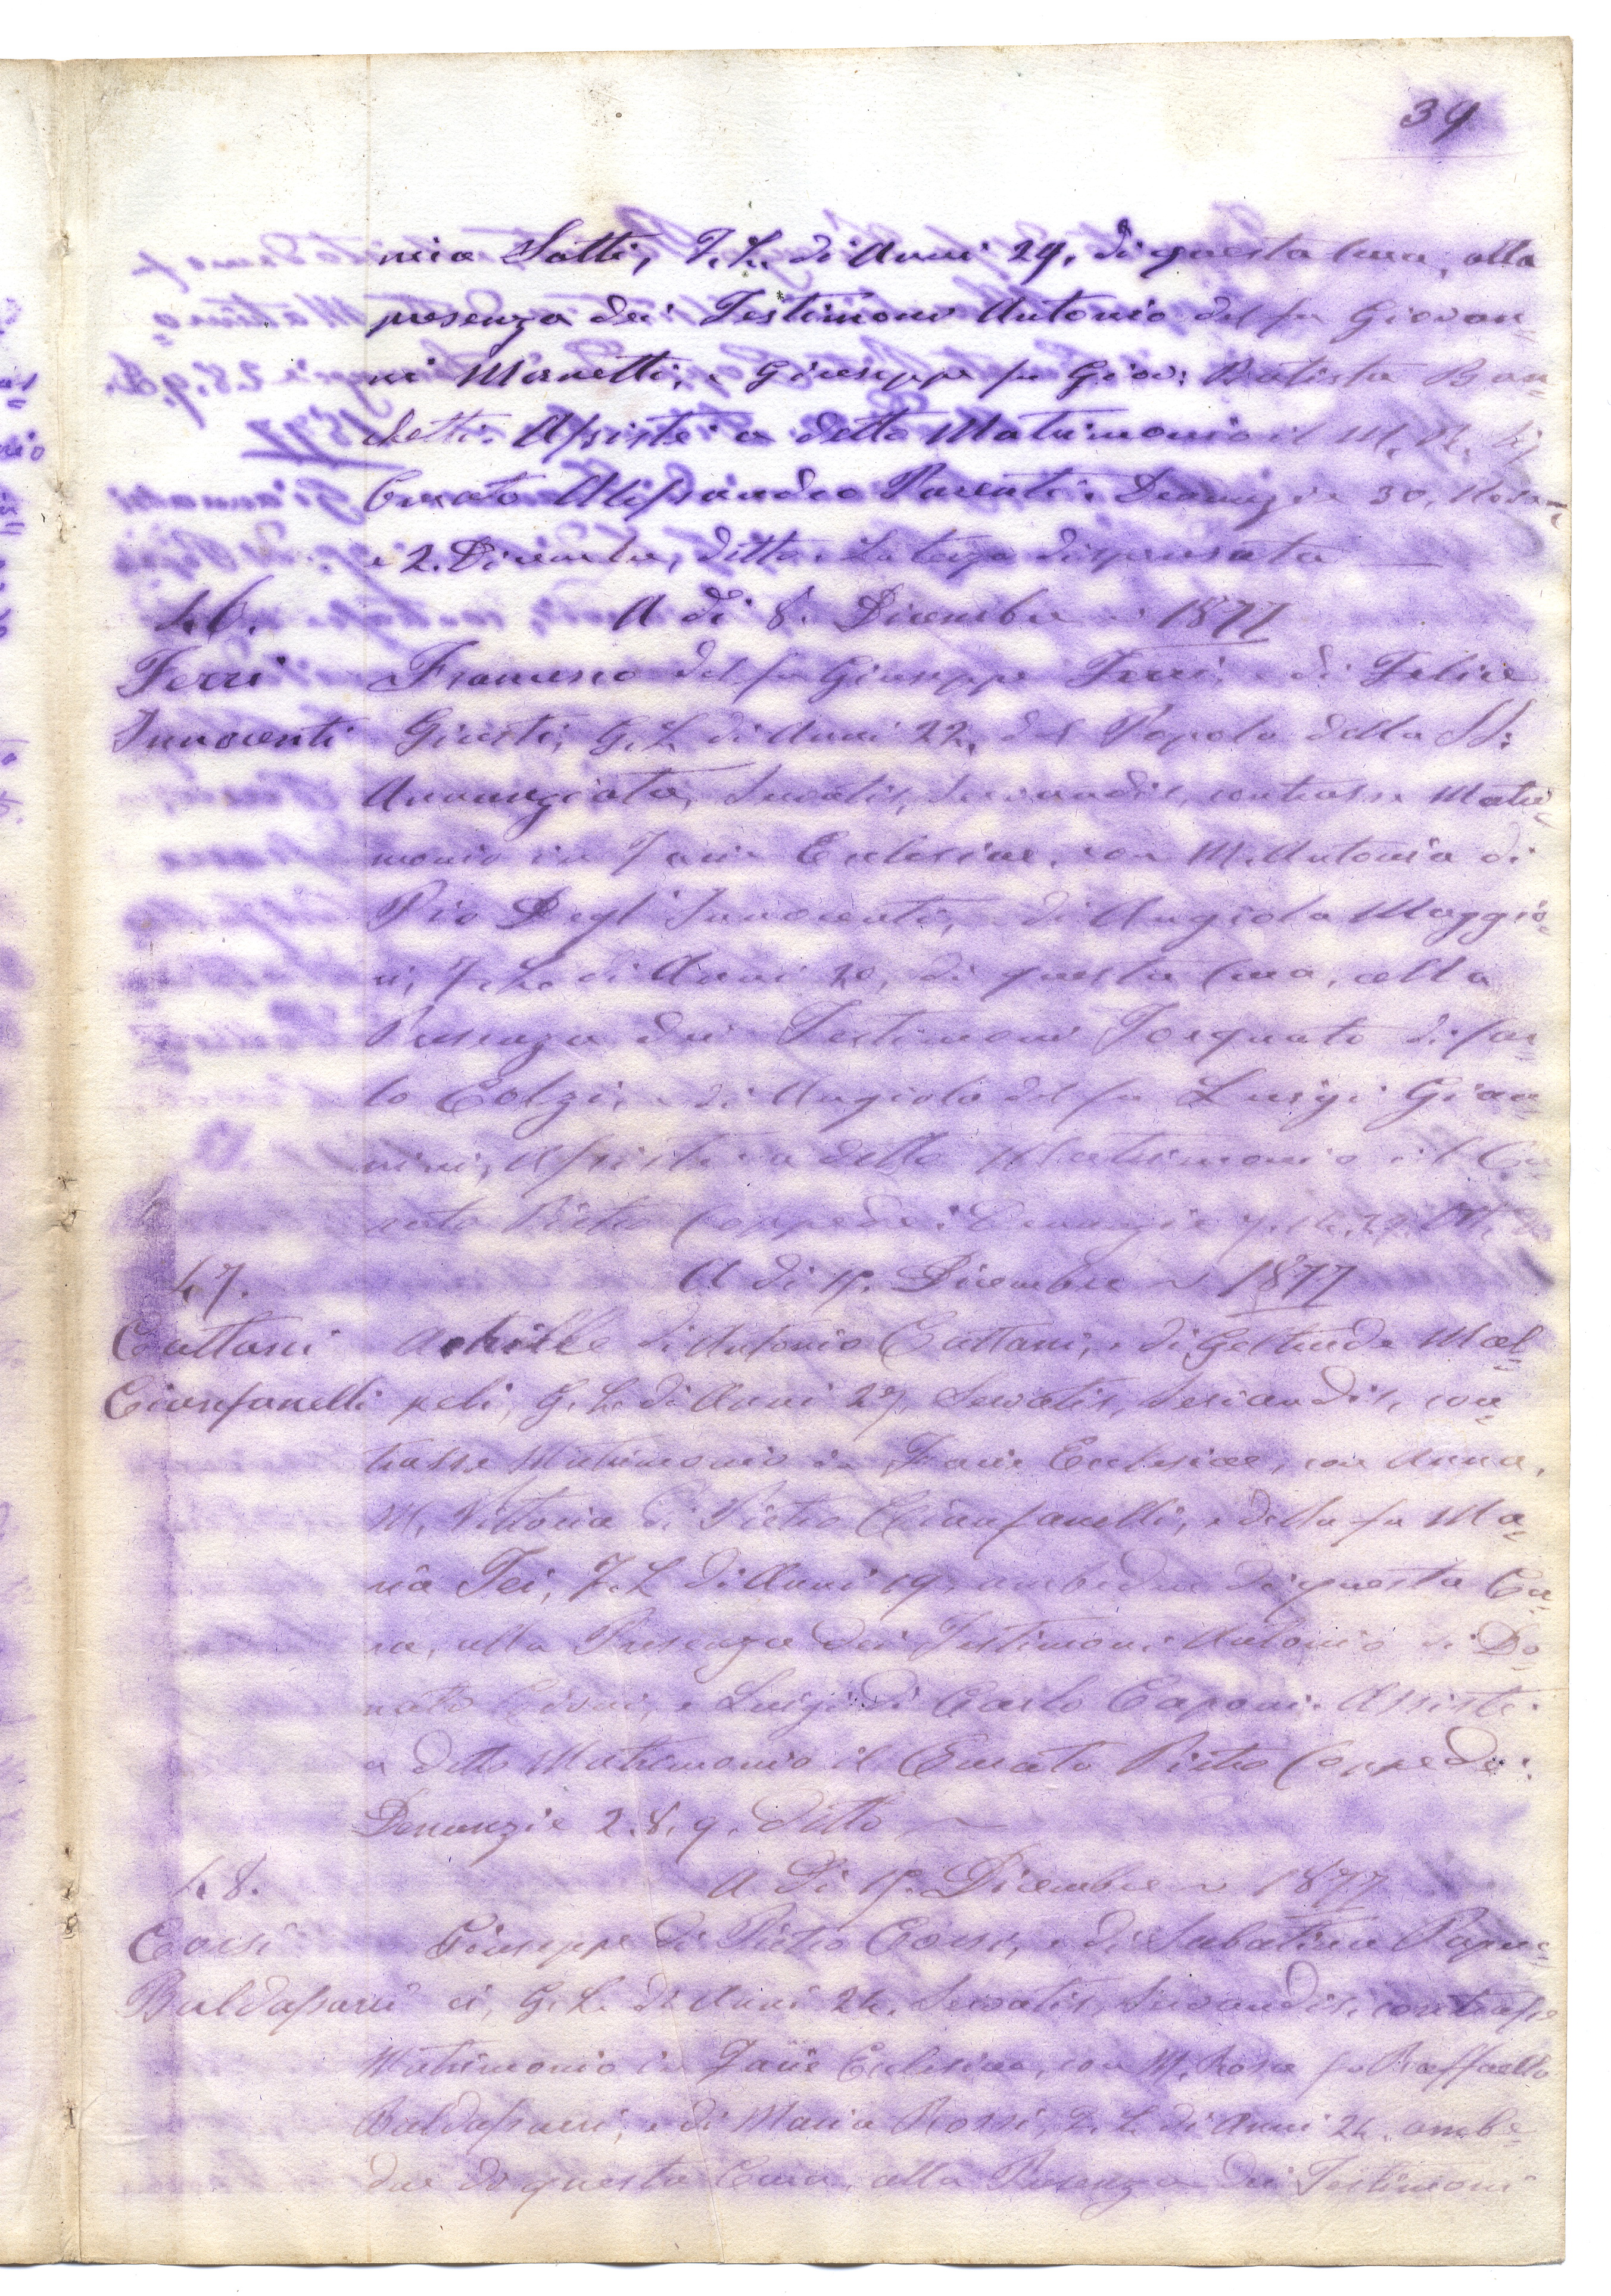 39
nia Satti, F. L. di Anni 24. di questa Cura, alla
presenza dei Testimoni Antonio del fu Giovan=
ni Manetti, e Giuseppe fu Giov: Batista Ban=
chetti. Assistè a detto Matrimonio il M. R. Sig
Curato Alessandro Parenti. Denunzie 30. Nov
e 2. Dicembre, ditto. La terza dispensata
46. A dì 8. Dicembre ~ 1877
Ferri Francesco del fu Giuseppe Ferri, e di Felice
Innocenti Giusti, G. L. di Anni 22. del Popolo della SS:
Annunziata, Servatis, Servandis, contrasse Matri=
monio in Facie Ecclesiae, con M. Antonia di
Pio Degl'Innocenti, e di Angiola Maggio=
ni, F. L. di Anni 20, di questa Cura, alla
Presenza dei Testimoni Torquato di Car=
lo Colzi, e di Angiolo del fu Luigi Gian=
nini, Assistè a detto Matrimonio il Cu=
rato Pietro Coppedè: Denunzie
47. A dì 15. Dicembre ~ 1877
Cattani Achille di Antonio Cattani, e di Geltrude Mal=
Cianfanelli peli, G. L. di Anni 27, Servatis, Servandis, con=
trasse Matrimonio in Facie Ecclesiae, con Anna,
M. Vittoria di Pietro Cianfanelli, e della fu Ma=
ria Fei, F. L. di Anni 19. ambedue di questa Cu=
ra, alla Presenza dei Testimoni Antonio di Do=
nato e Luigi di Carlo Caponi. Assistè
a detto Matrimonio il Curato Pietro Coppedè:
Denunzie 2. 8. 9. ditto ~
48. A dì 15. Dicembre ~ 1877
Corsi Giuseppe di Pietro Corsi, e di Sabatina Papuc=
Baldassarri ci, G. L. di Anni 24. Servatis, Servandis, contrasse
Matrimonio in Facie Ecclesiae, con M. Rosa fu Raffaello
Baldassarri, e di Maria Rossi, F. L. di Anni 24. ambe=
due di questa Cura, alla Presenza dei Testimoni